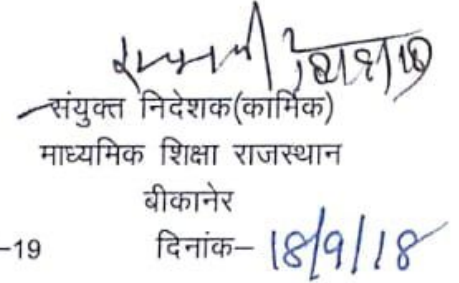 संयुक्त निदेशक(कार्मिक)
माध्यमिक शिक्षा राजस्थान
बीकानेर
-19 दिनांक– 18/9/18